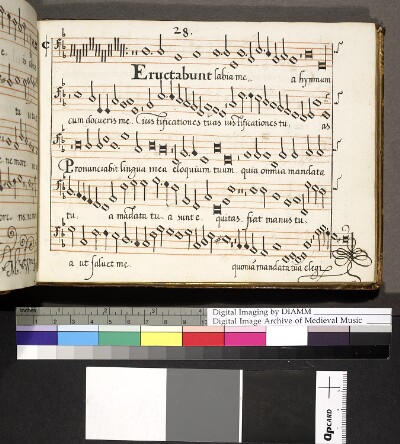 28.
Eructabunt labia me a hymnum
cum docueris me. Cius tificationes tuas ius tificationes tu as
Pronunciabit lingua mea eloquium tuum. quia omnia mandata
tu. a mādata tu a sunt e quitas. fiat manus tu.
a ut saluet me. quoniā mandata tua elegi
inches
Digital Imaging by DIAMM
Digital Image Archive of Medieval Music
QPCARD